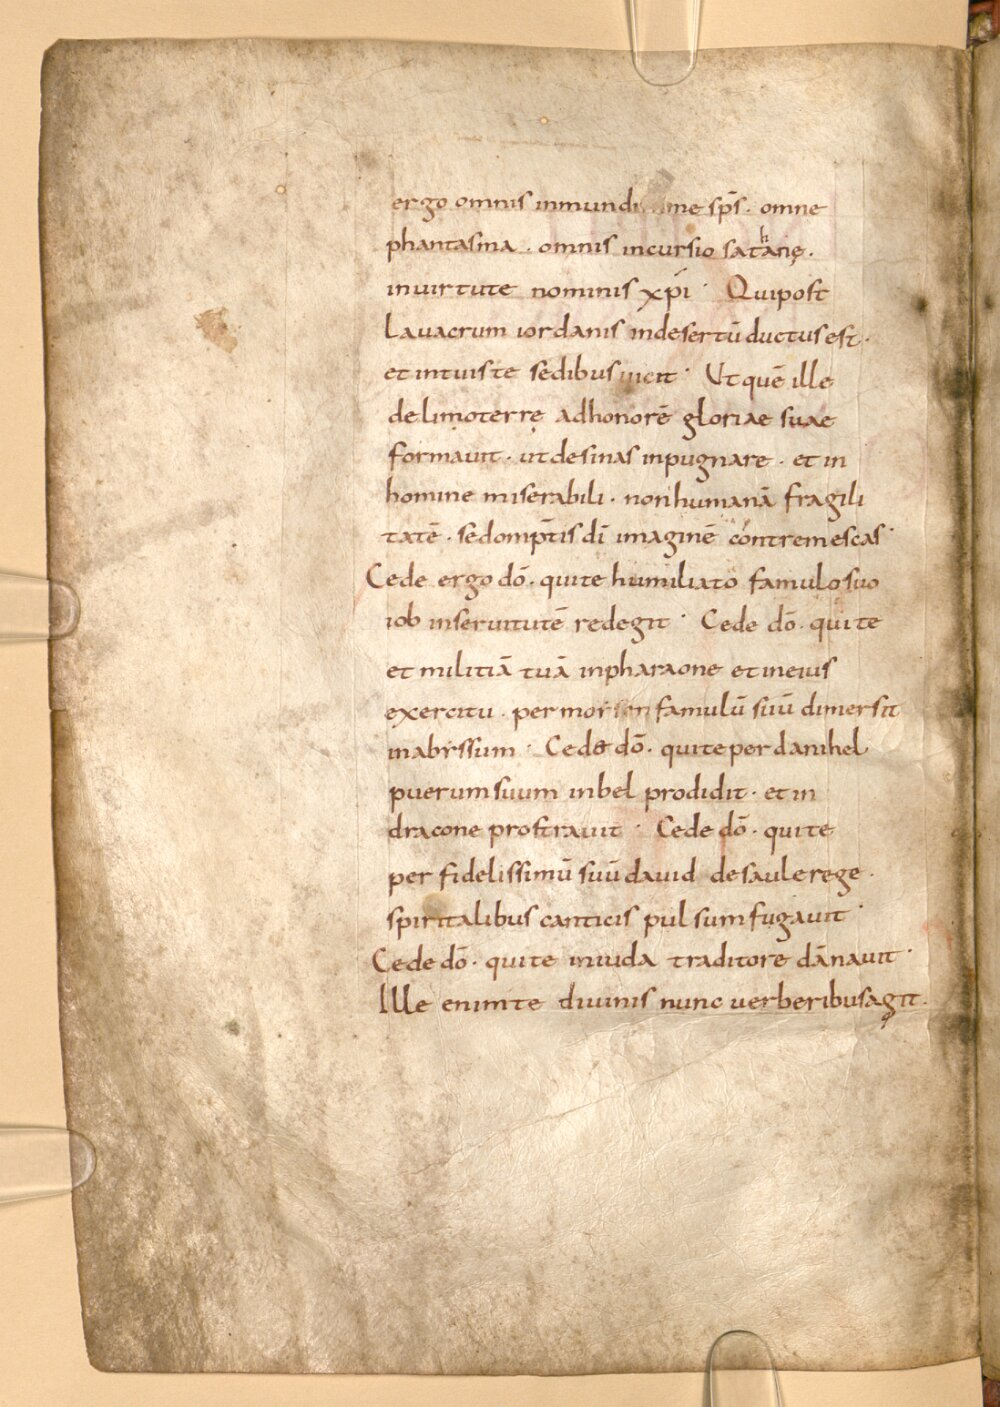 ergo omnis inmundissime sps̄· omne
phantasma · omnis incursio sathanę ·
inuirtute nominis xp̄i · Quipost
Lauacrum iordanis indesertū ductus est ·
et intuiste sedibus uicit · Ut quē ille
delimoterrę adhonorē gloriae suae
formauit · ut desinas inpugnare · et in
homine miserabili · non humanā fragili
tatē · sed omp̄tis dī imaginē contremescas ·
Cede ergo dō· qui te humiliato famulo suo
iob inseruitutē redegit · Cede dō· qui te
et militiā tuā inpharaone et ineius
exercitu · per morsen famulū suū dimersit
inabyssum · Cede dō· quite per danihel
puerum suum inbel prodidit · et in
dracone prostrauit · Cede dō· quite
per fidelissimū suū dauid desaule rege ·
spiritalibus canticis pulsum fugauit ·
Cede dō· quite iniuda traditore dānauit ·
Ille enim te diuinis nunc uerberibus agit ·